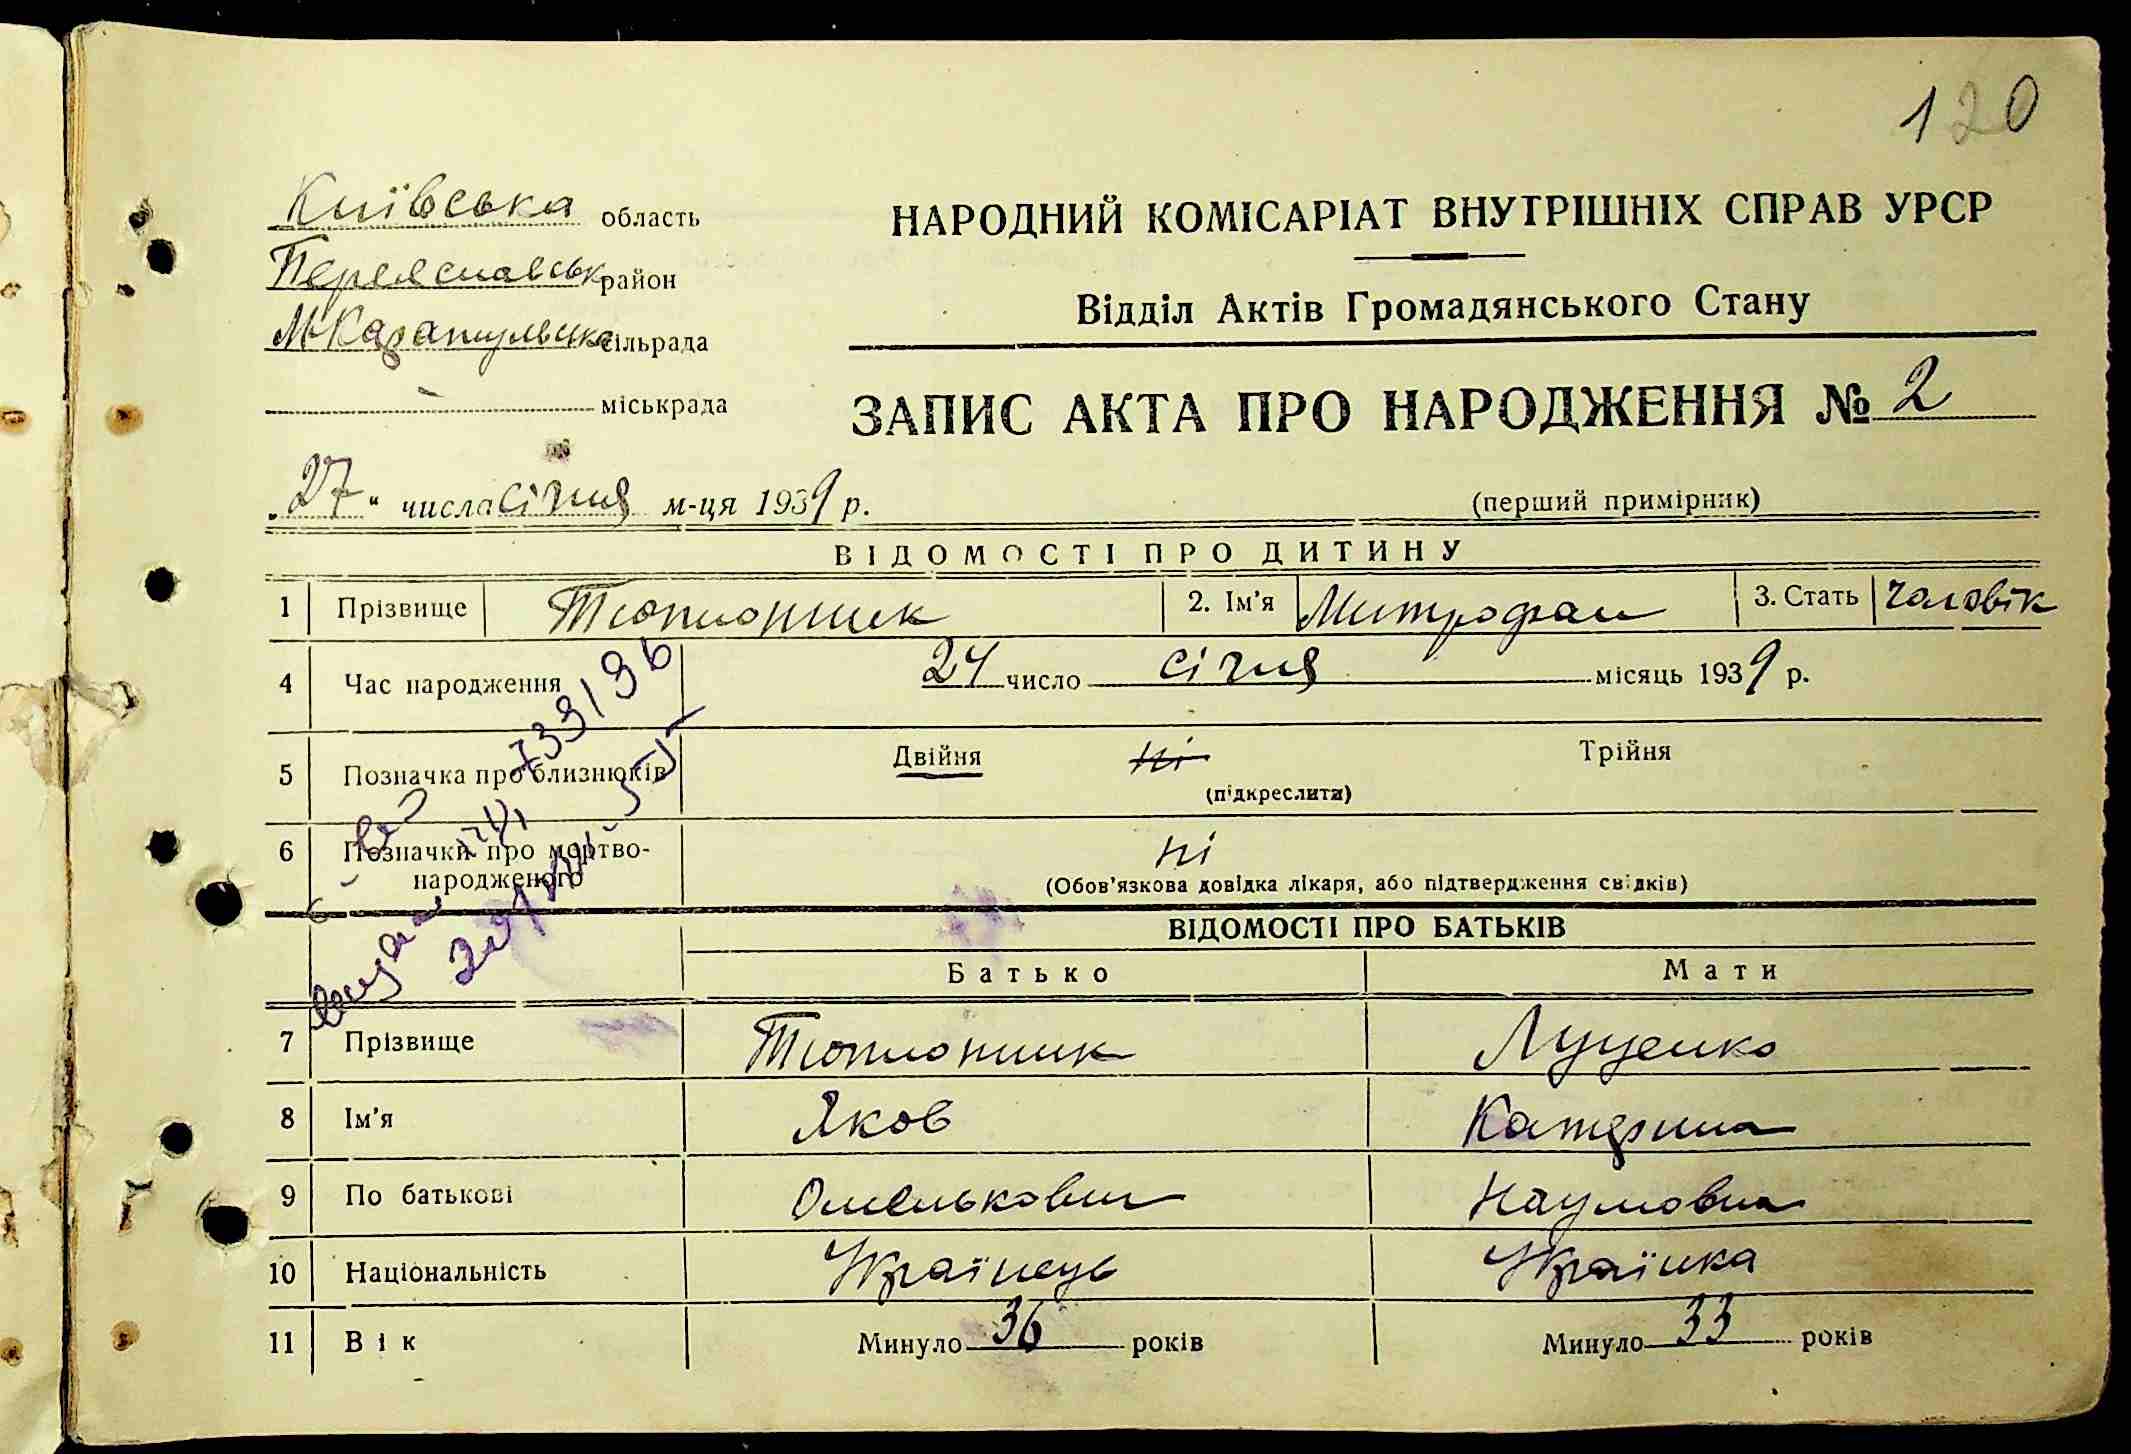 120
Київська область
Переяславськ район
М-Каратульська сільрада
міськрада
НАРОДНИЙ КОМІСАРІАТ ВНУТРІШНІХ СПРАВ УРСР
Відділ Актів Громадянського Стану
ЗАПИС АКТА ПРО НАРОДЖЕННЯ № 2
„27“ числа січня м-ця 1939 р.
(перший примірник)
ВІДОМОСТІ ПРО ДИТИНУ
1 Прізвище Тюпнопшик 2. Ім'я Митрофан 3. Стать Чоловік
4 Час народження 24 число січня місяць 1939 р.
5 Позначка про близнюків Двійня ні Трійня
(підкреслити)
6 Позначки про мертво-
народженого ні
(Обов'язкова довідка лікаря, або підтвердження свідків)
733196
ВІДОМОСТІ ПРО БАТЬКІВ
Батько Мати
7 Прізвище Луценко
8 Ім'я Яков Катерина
9 По батькові Омелькович Наумовна
10 Національність Українець Українка
11 Вік Минуло 36 років Минуло 33 років